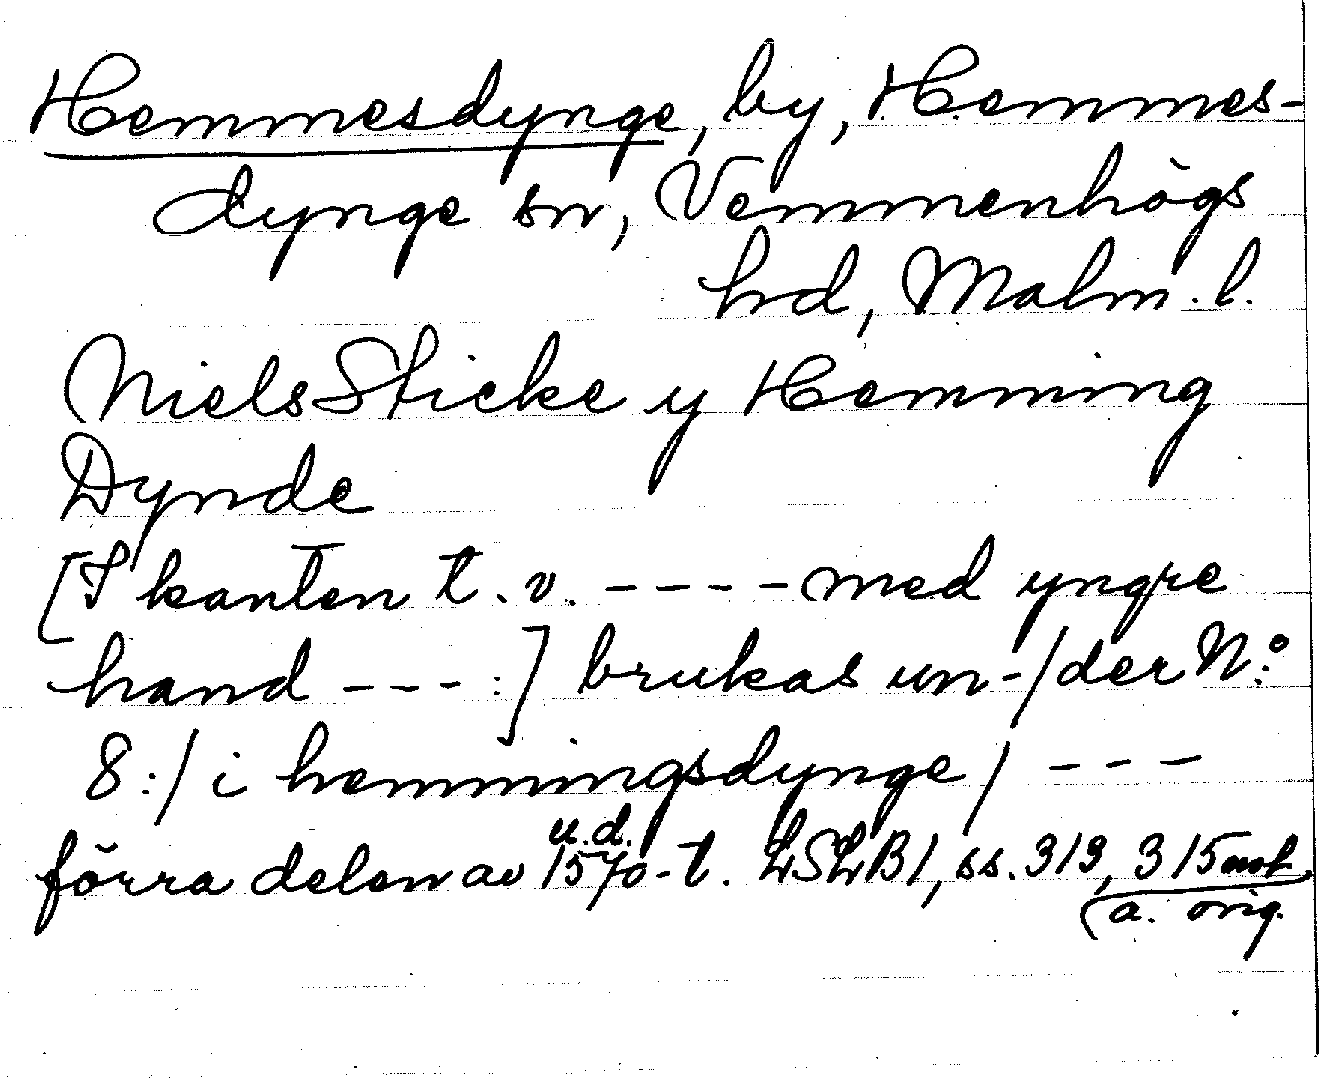 Hemmesdynge, by, Hemmes-
dynge sn, Vemmenhögs
hd, Malm. l.
Niels Sticke y Hemming
Dynde
[I kanten t. v. - - - - med yngre
hand - - - :] brukas un-/der N:o
8:/ i hemmingsdynge / - - -
u. d.
förra delen av 1570-t. LSLB1, ss. 313, 315 not
(a. orig.